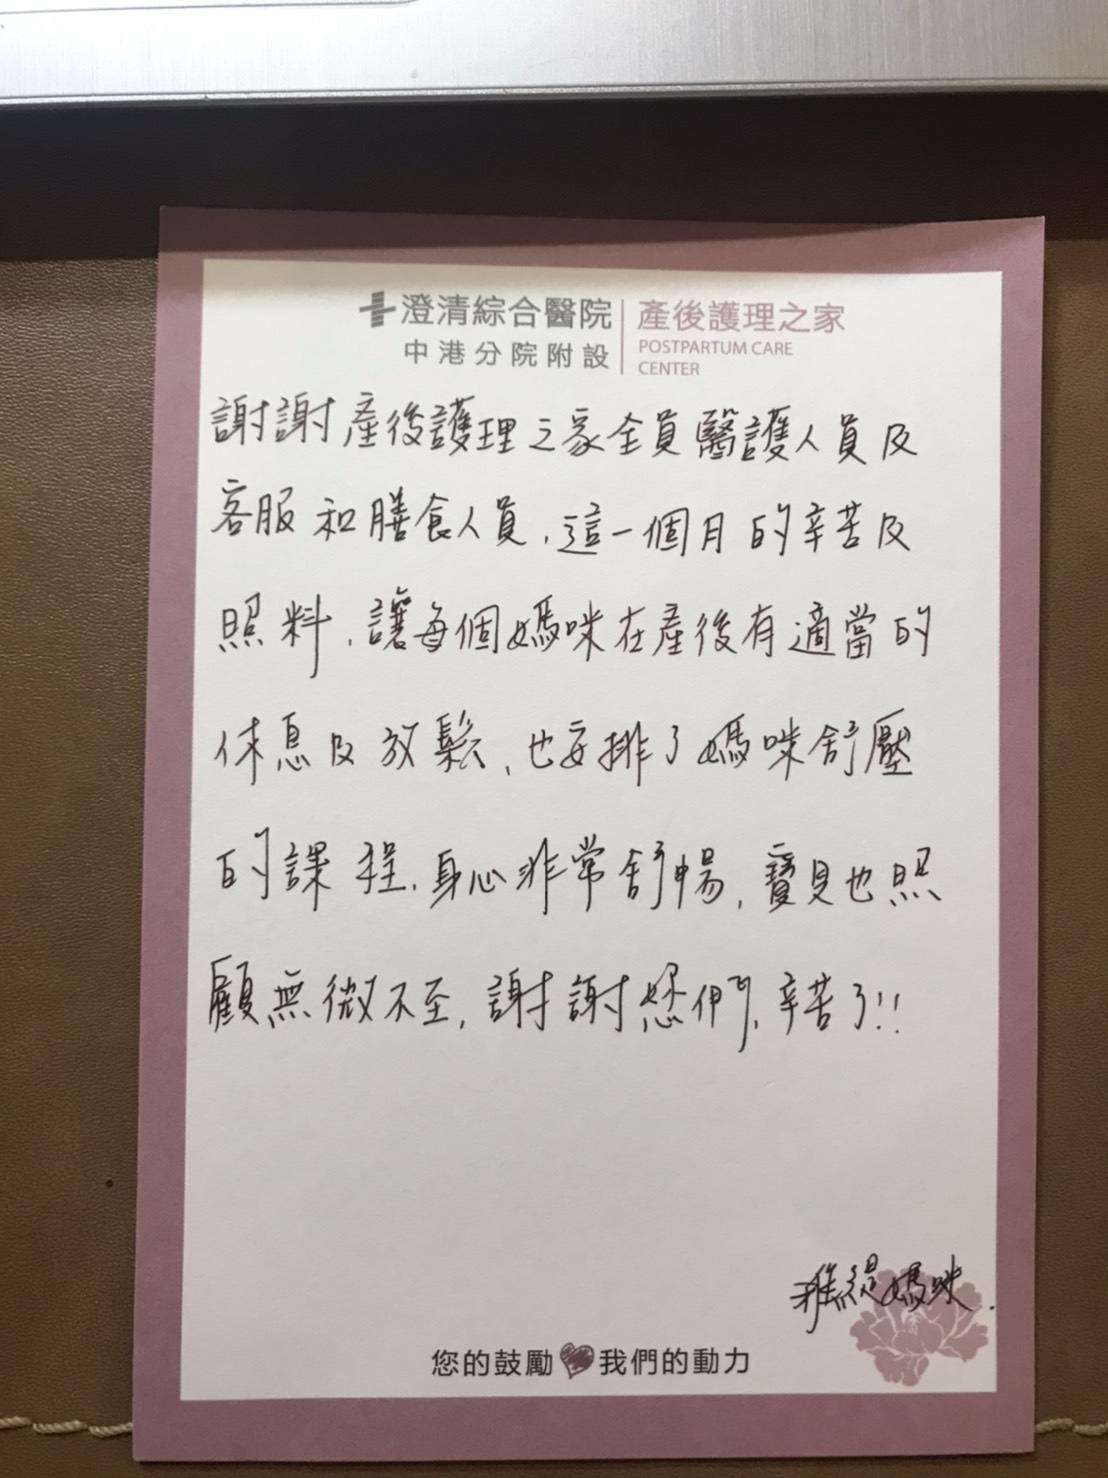 澄清綜合醫院
中港分院附設
產後護理之家
POSTPARTUM CARE
CENTER
謝謝產後護理之家全員醫護人員及
客服和膳食人員,這一個月的辛苦及
照料,讓每個媽咪在產後有適當的
休息及放鬆,也安排了媽咪舒壓
的課程,身心非常舒暢,寶貝也照
顧無微不至,謝謝您們,辛苦了!!
雅緹媽咪.
您的鼓勵 我們的動力